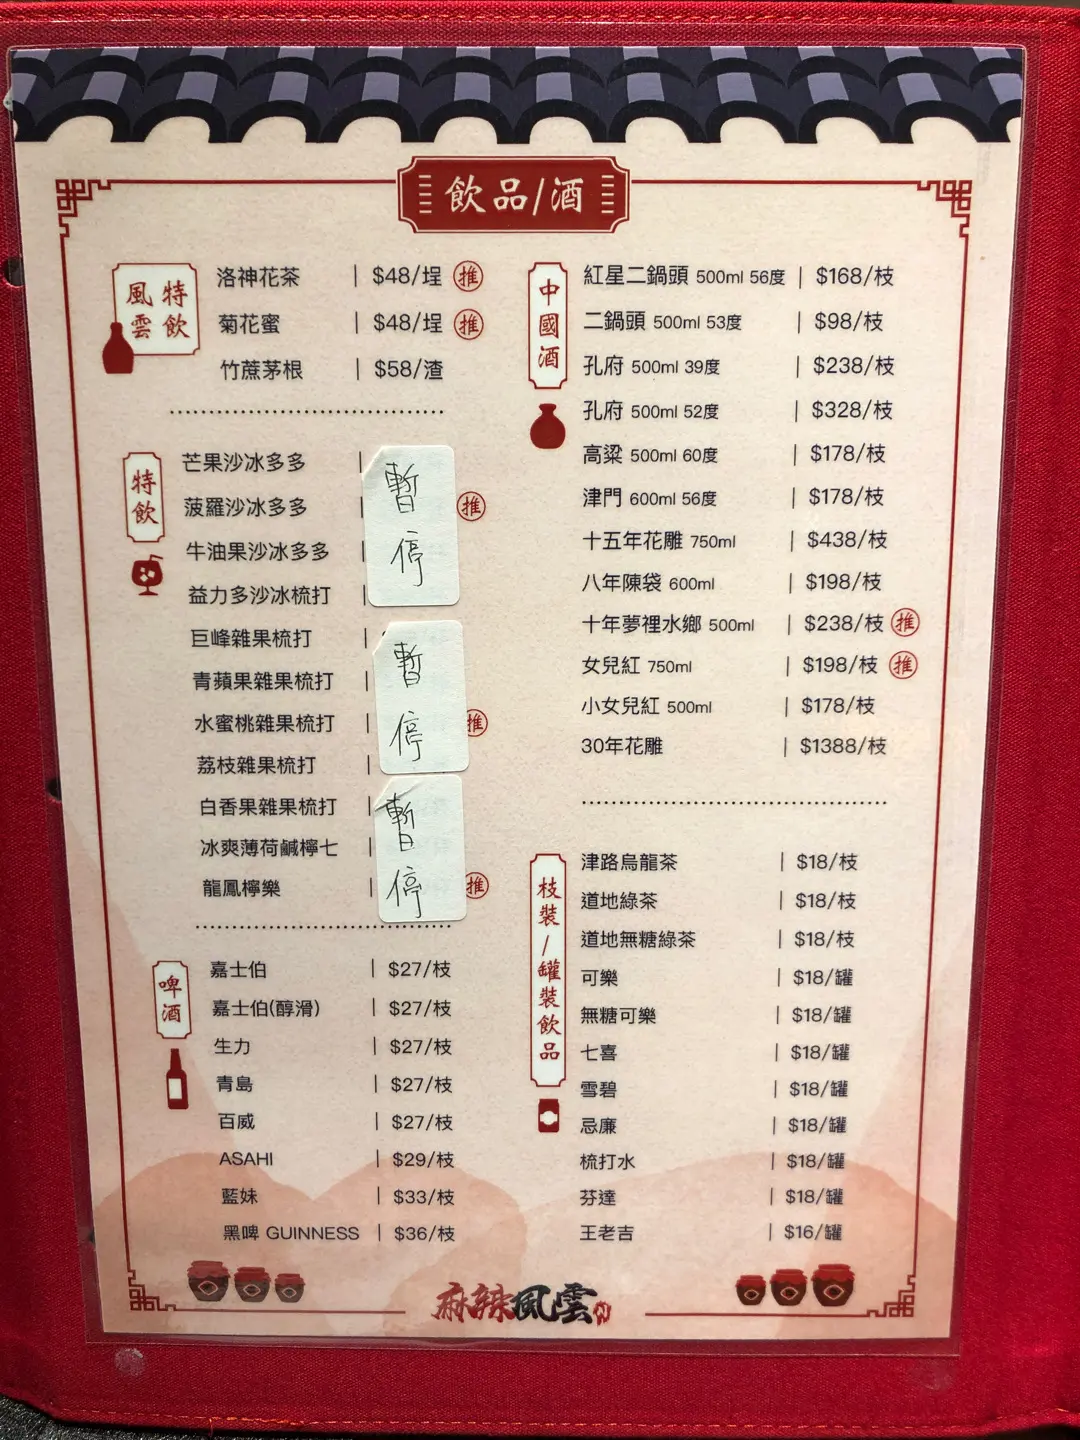 飲品/酒
風雲特飲
洛神花茶 | $48/埕 推
菊花蜜 | $48/埕 推
竹蔗茅根 | $58/渣
特飲
芒果沙冰多多 |
菠羅沙冰多多 | 推
牛油果沙冰多多 |
益力多沙冰梳打 |
暫停
巨峰雜果梳打 |
青蘋果雜果梳打 |
水蜜桃雜果梳打 | 推
荔枝雜果梳打 |
暫停
白香果雜果梳打 |
冰爽薄荷鹹檸七 |
龍鳳檸樂 | 推
暫停
啤酒
嘉士伯 | $27/枝
嘉士伯(醇滑) | $27/枝
生力 | $27/枝
青島 | $27/枝
百威 | $27/枝
ASAHI | $29/枝
藍妹 | $33/枝
黑啤 GUINNESS | $36/枝
中國酒
紅星二鍋頭 500ml 56度 | $168/枝
二鍋頭 500ml 53度 | $98/枝
孔府 500ml 39度 | $238/枝
孔府 500ml 52度 | $328/枝
高粱 500ml 60度 | $178/枝
津門 600ml 56度 | $178/枝
十五年花雕 750ml | $438/枝
八年陳袋 600ml | $198/枝
十年夢裡水鄉 500ml | $238/枝 推
女兒紅 750ml | $198/枝 推
小女兒紅 500ml | $178/枝
30年花雕 | $1388/枝
枝裝/罐裝飲品
津路烏龍茶 | $18/枝
道地綠茶 | $18/枝
道地無糖綠茶 | $18/枝
可樂 | $18/罐
無糖可樂 | $18/罐
七喜 | $18/罐
雪碧 | $18/罐
忌廉 | $18/罐
梳打水 | $18/罐
芬達 | $18/罐
王老吉 | $16/罐
麻辣風雲